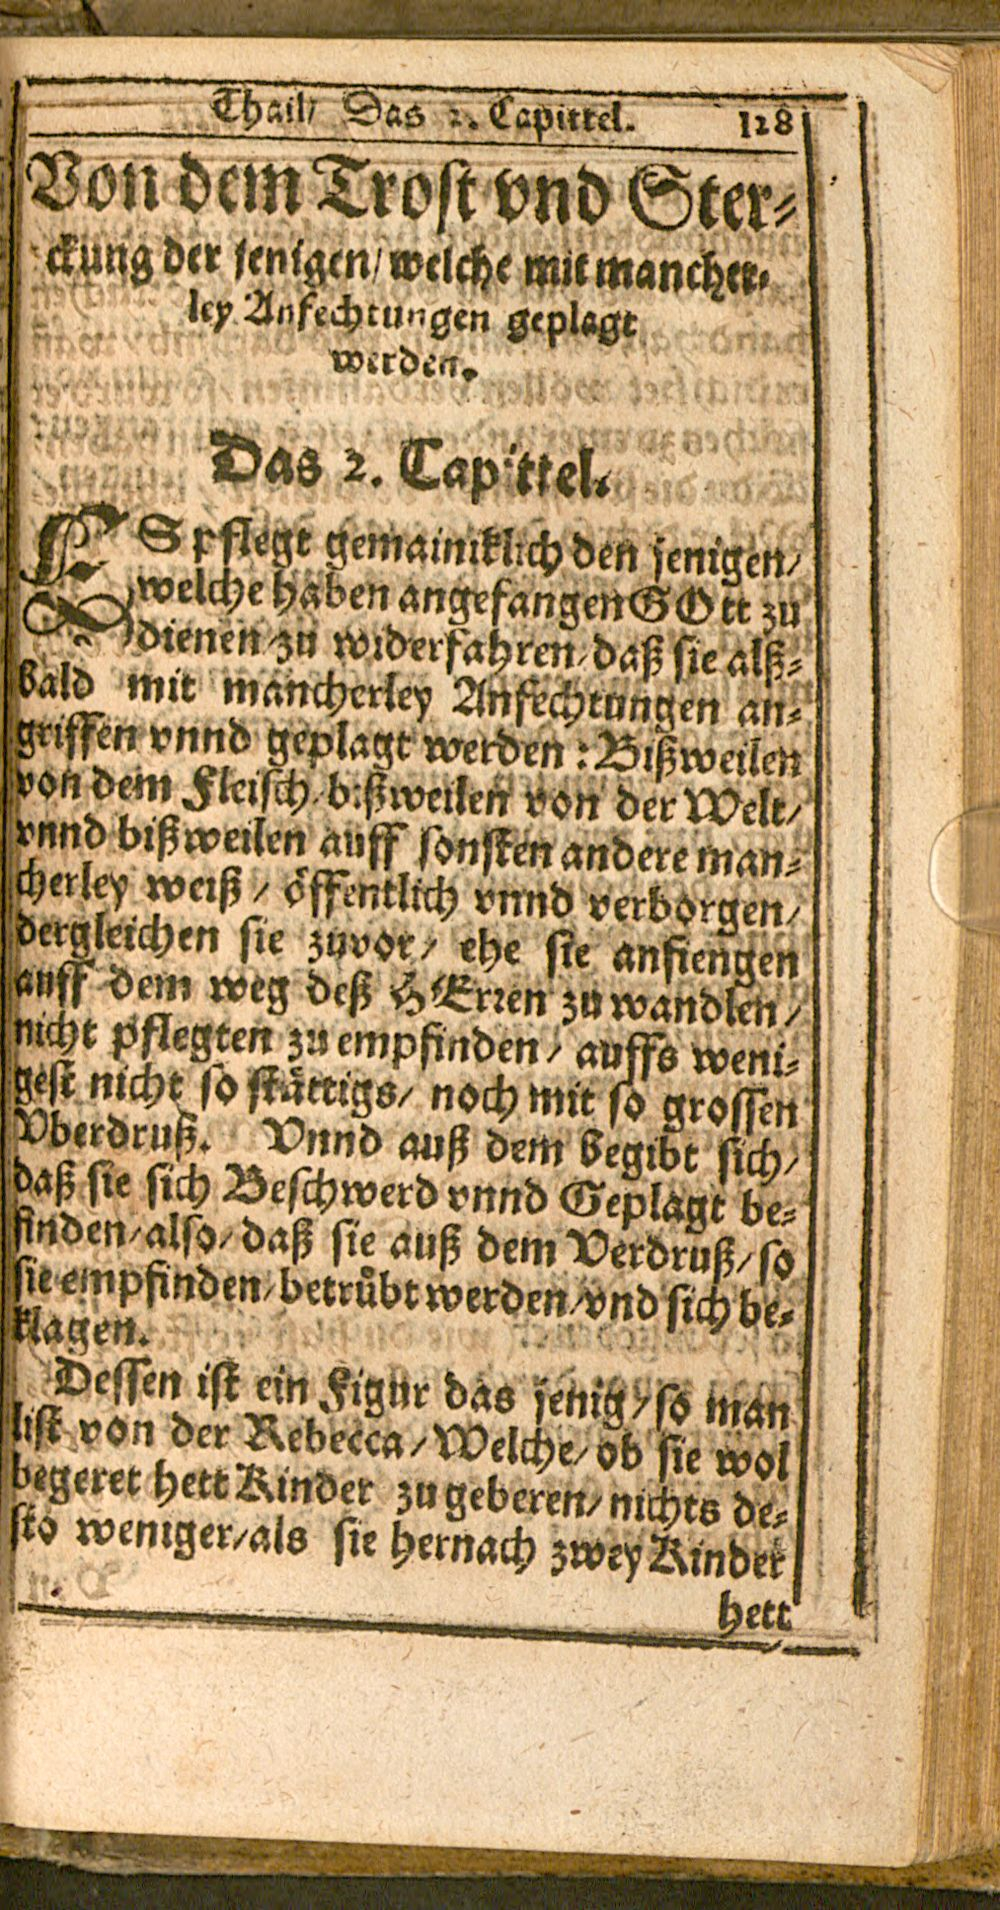 Thail/ Das 2. Capittel. 128
Von dem Trost vnd Ster⸗
ckung der jenigen/ welche mit mancher⸗
ley Anfechtungen geplagt
werden.
Das 2. Capittel.
ES pflegt gemainiklich den jenigen/
welche haben angefangen GOtt zu
dienen zu widerfahren/ daß sie alß⸗
bald mit mancherley Anfechtungen an⸗
griffen vnnd geplagt werden: Bißweilen
von dem Fleisch/ bißweilen von der Welt/
vnnd bißweilen auff sonsten andere man⸗
cherley weiß / öffentlich vnnd verborgen/
dergleichen sie zuvor/ ehe sie anfiengen
auff dem weg deß HErren zu wandlen /
nicht pflegten zu empfinden / auffs weni⸗
gest nicht so stättigs/ noch mit so grossen
Vberdruß. Vnnd auß dem begibt sich/
daß sie sich Beschwerd vnnd Geplagt be⸗
finden/ also/ daß sie auß dem Verdruß/ so
sie empfinden/ betrübt werden/ vnd sich be⸗
klagen.
Dessen ist ein Figur das jenig / so man
list von der Rebecca / Welche/ ob sie wol
begeret hett Kinder zu geberen/ nichts de⸗
sto weniger/ als sie hernach zwey Kinder
hett